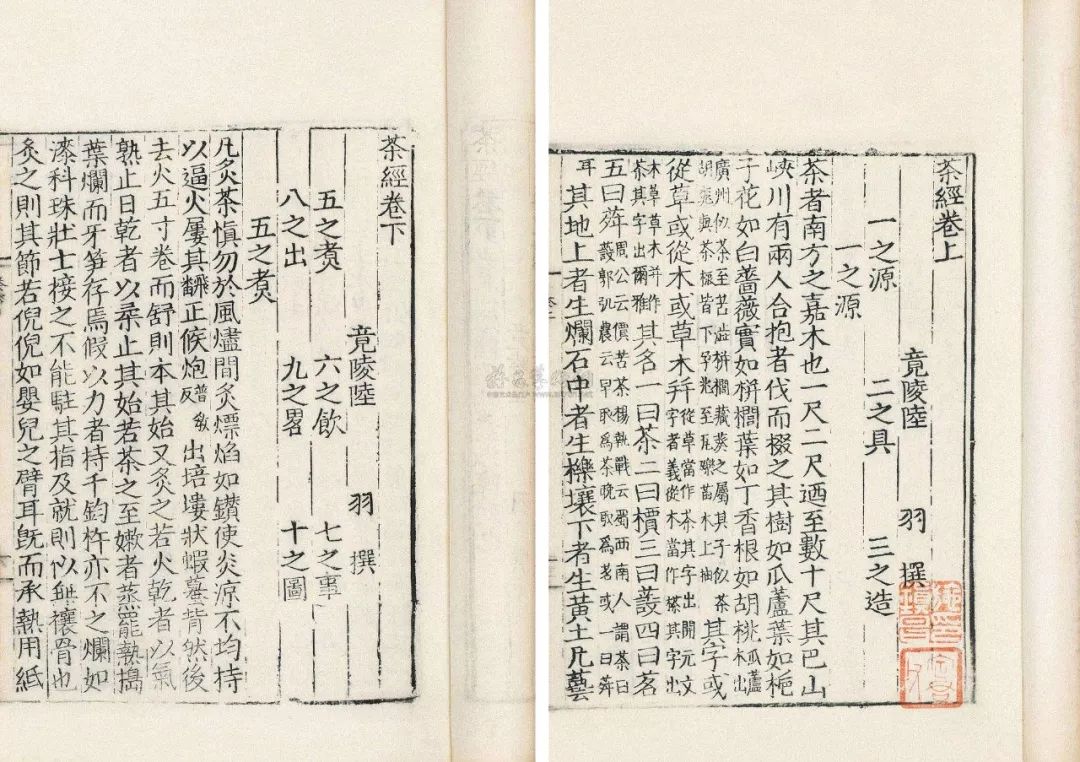 茶經卷上
竟陵陸 羽 撰
一之源 二之具 三之造
一之源
茶者南方之嘉木也一尺二尺迺至數十尺其巴山
峽川有兩人合抱者伐而掇之其樹如瓜蘆葉如梔
子花如白薔薇實如栟櫚葉如丁香根如胡桃瓜蘆木出
廣州似茶至苦澁栟櫚蒲葵之屬其子似茶胡桃與茶根皆下孕兆至瓦礫苗木上抽其字或
從草或從木或草木并從草當作茶其字出開元文字音義從木當作㮈其字出
本草草木并作茶其字出爾雅其名一曰茶二曰檟三曰蔎四曰茗
五曰荈周公云檟苦茶楊執戟云蜀西南人謂茶曰蔎郭弘農云早取為茶晚取為茗或一曰荈
耳其地上者生爛石中者生櫟壤下者生黃土凡藝
茶經卷下
竟陵陸 羽 撰
五之煑 六之飲 七之事
八之出 九之畧 十之圖
五之煑
凡炙茶愼勿於風燼間炙熛焰如鑽使炎涼不均持
以逼火屢其翻正候炮普教反出培塿狀蝦蟇背然後
去火五寸卷而舒則本其始又炙之若火乾者以氣
熟止日乾者以柔止其始若茶之至嫩者蒸罷熱搗
葉爛而牙笋存焉假以力者持千鈞杵亦不之爛如
漆科珠壯士接之不能駐其指及就則似無禳骨也
炙之則其節若倪倪如嬰兒之臂耳旣而承熱用紙